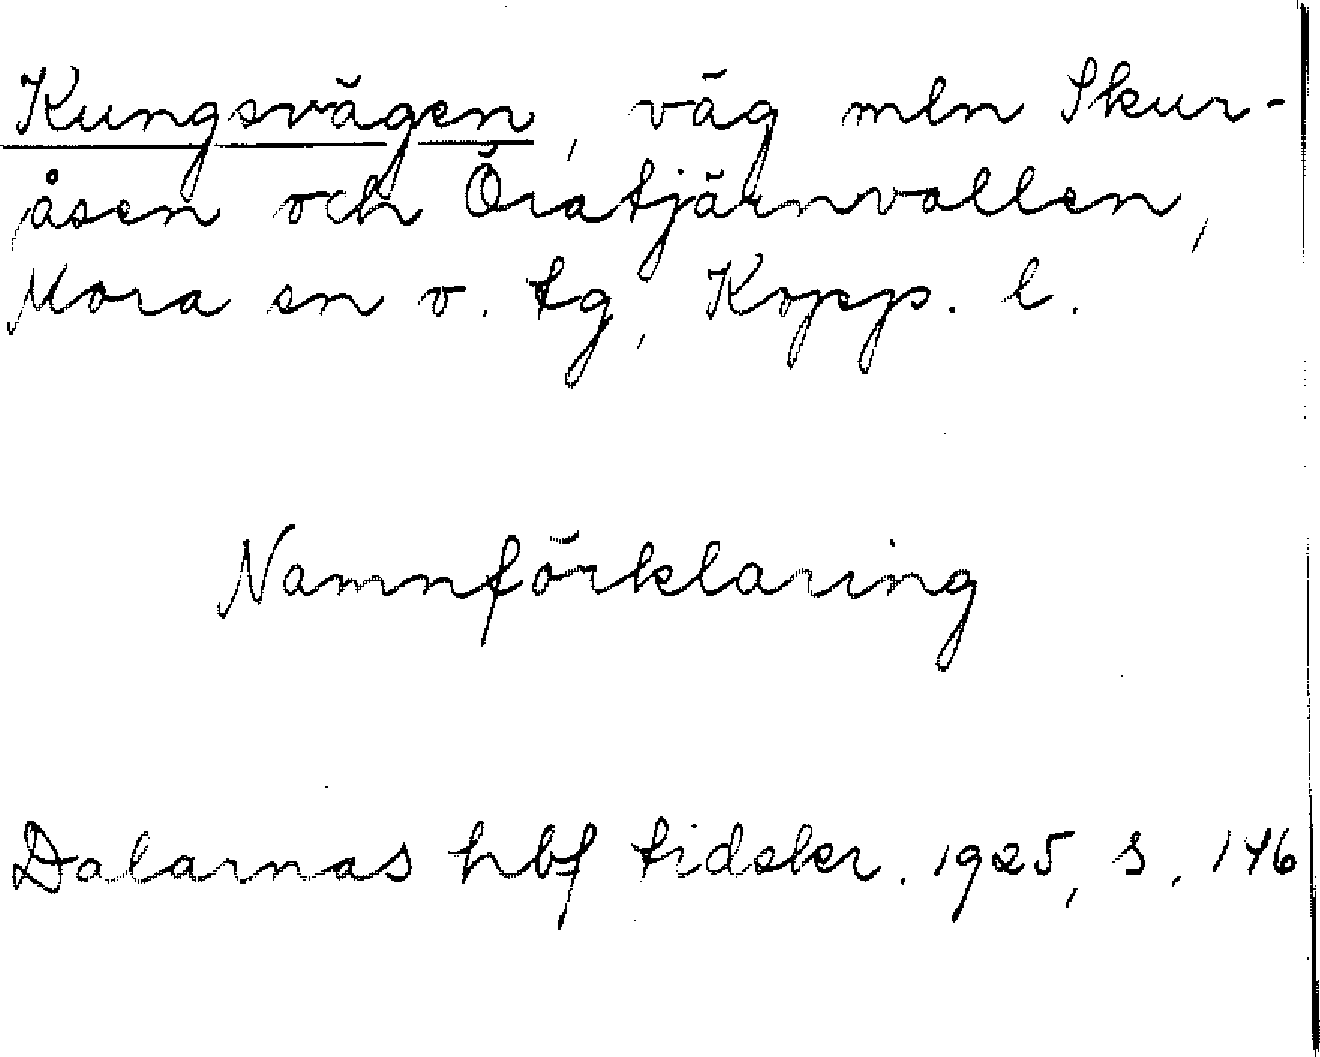 Kungsvägen, väg mln Skur-
åsen och Öratjärnvallen,
Mora sn v. tg, Kopp. l.
Namnförklaring
Dalarnas hbf tidskr. 1925, s. 146